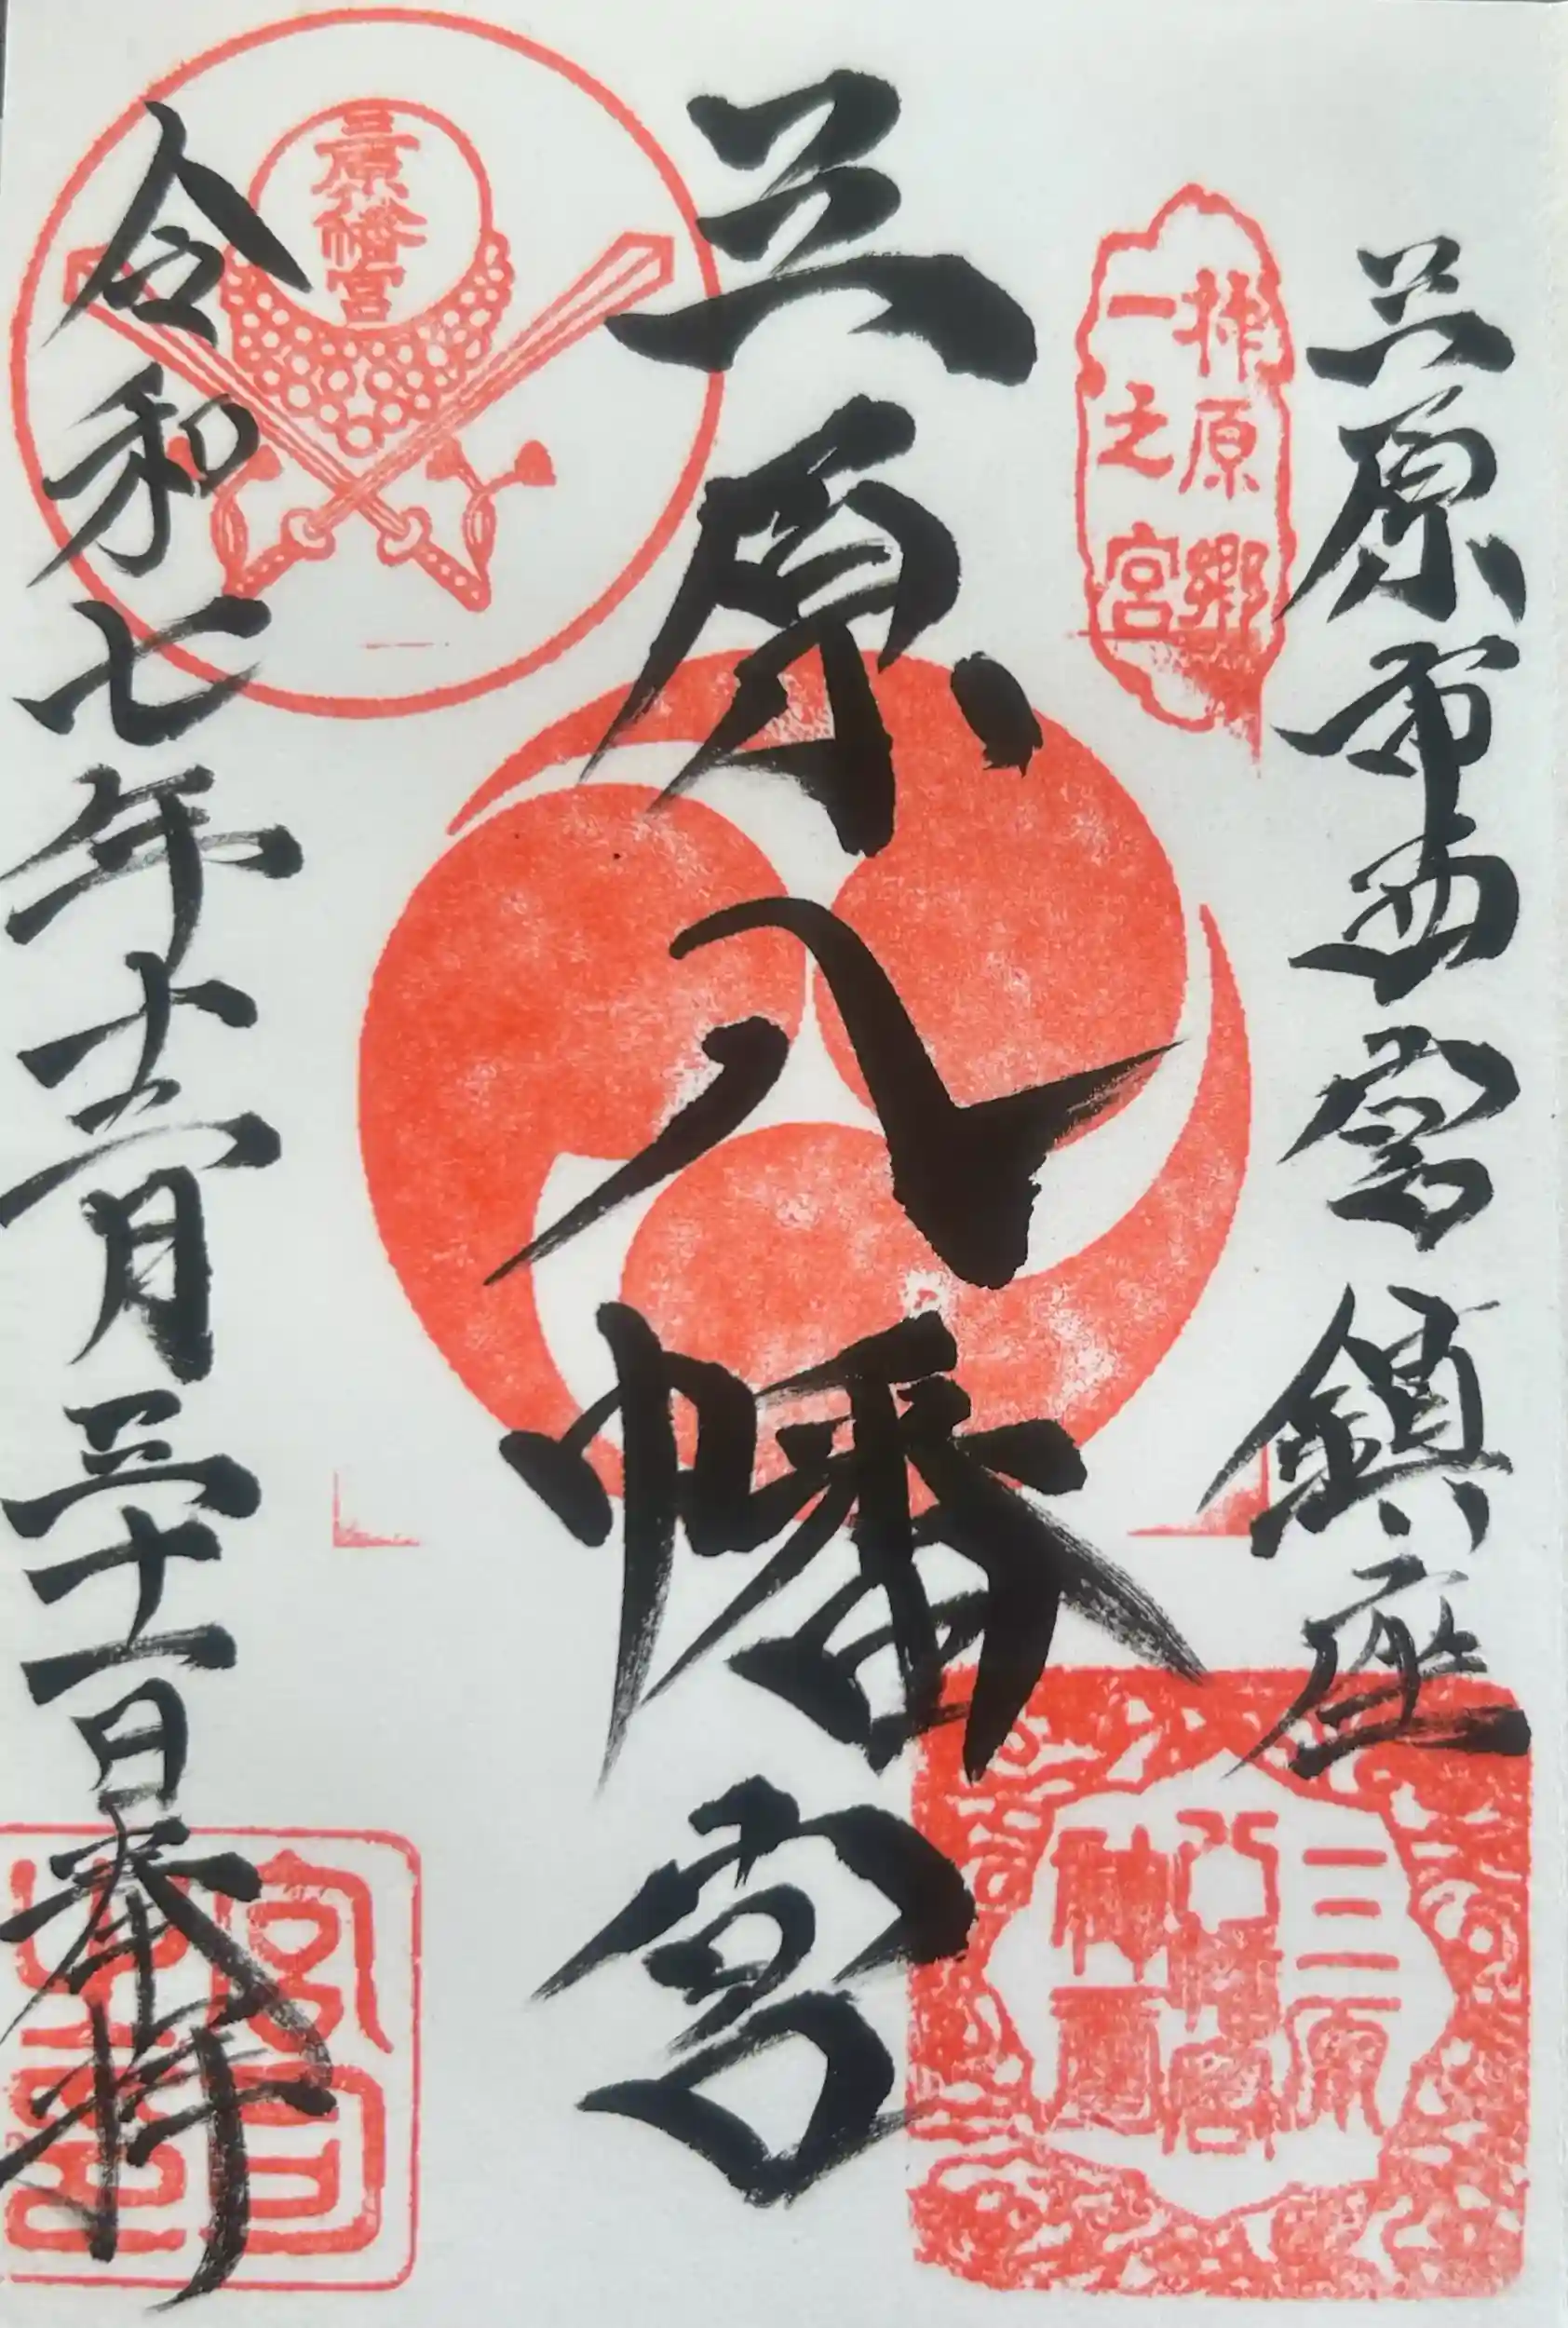 三原市西宮鎮座
柞原郷
一之宮
三原八幡宮
三原
八幡宮
神璽
三原八幡宮
令和七年十二月三十一日奉拝
宮司
之印